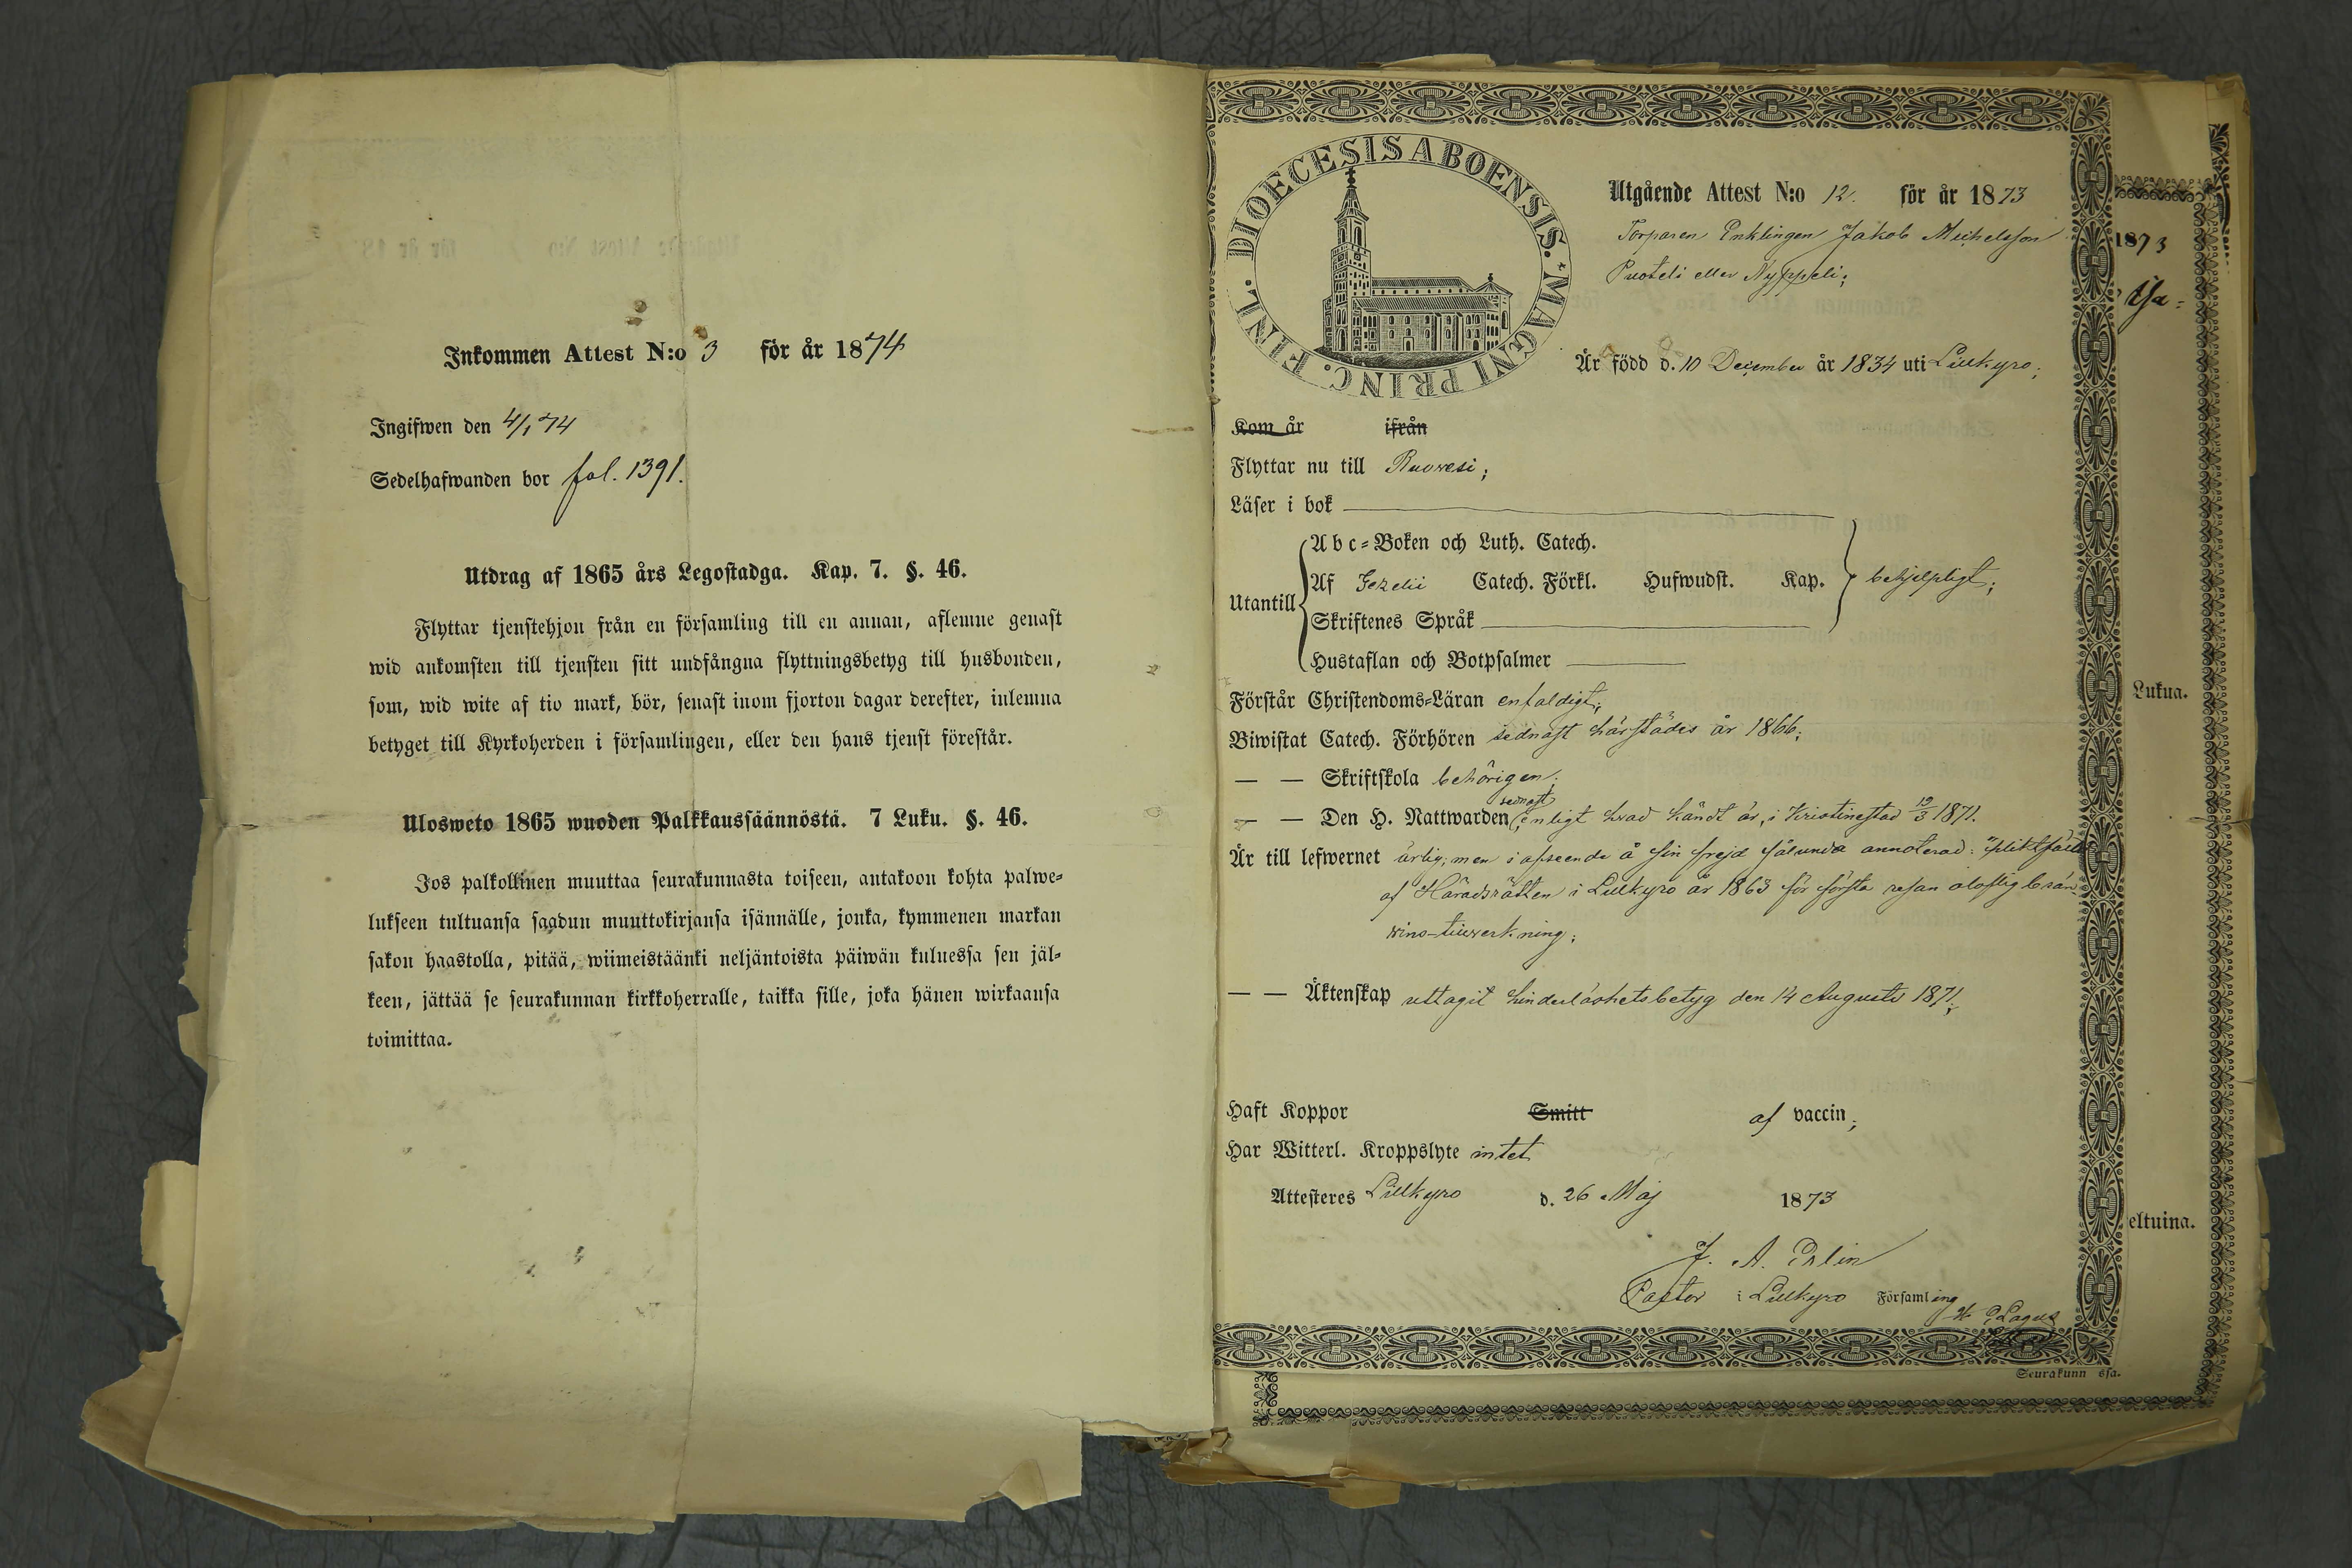 Inkommen Attest N:o 3 för år 1874
Ingifwen den 4/1 74
Sedelhafwanden bor fol. 1391.
Utdrag af 1865 års Legostadga. Kap. 7. §. 46.
Flyttar tjenstehjon från en församling till en annan, aflemne genast
wid ankomsten till tjensten sitt undfångna flyttningsbetyg till husbonden,
som, wid wite af tio mark, bör, senast inom fjorton dagar derefter, inlemna
betyget till Kyrkoherden i församlingen, eller den hans tjenst förestår.
Ulosweto 1865 wuoden Palkkaussäännöstä. 7 Luku. §. 46.
Jos palkollinen muuttaa seurakunnasta toiseen, antakoon kohta palwe-
lukseen tultuansa saadun muuttokirjansa isännälle, jonka, kymmenen markan
sakon haastolla, pitää, wiimeistäänki neljäntoista päiwän kuluessa sen jäl-
keen, jättää se seurakunnan kirkkoherralle, taikka sille, joka hänen wirkaansa
toimittaa.
DIOECESIS ABOENSIS. * MAGNI PRINC. FINL.
Utgående Attest N:o 12. för år 1873
Torparen Enklingen Jakob Michelsson
eller Nyppeli;
Är född d. 10 December år 1834 uti Lillkyro;
Kom år ifrån
Flyttar nu till Ruovesi;
Läser i bok
Utantill
Abc-Boken och Luth. Catech.
Af Gezelii Catech. Förkl. Hufwudst. Kap.
behjelpligt;
Skriftenes Språk
Hustaflan och Botpsalmer
Förstår Christendoms-Läran enfaldigt;
Biwistat Catech. Förhören sednast härstädes år 1866;
— — Skriftskola behörigen;
sednast
— — Den H. Nattwarden, enligt hvad kändt är, i Kristinestad 19/3 1871.
Är till lefwernet ärlig, men i afseende å sin frejd sålunda annoterad: "pliktfäld
af Häradsrätten i Lillkyro år 1863 för första resan olaflig brän-
vins-tillverkning;
— — Äktenskap uttagit hinderlöshetsbetyg den 14 Augusti 1871;
Haft Koppor Smitt af vaccin;
Har Witterl. Kroppslyte intet
Attesteres Lillkyro d. 26 Maj 1873
J. A.
Pastor i Lillkyro Församling
Lagus
1873
Lukua.
eltuina.
Seurakunn ssa.